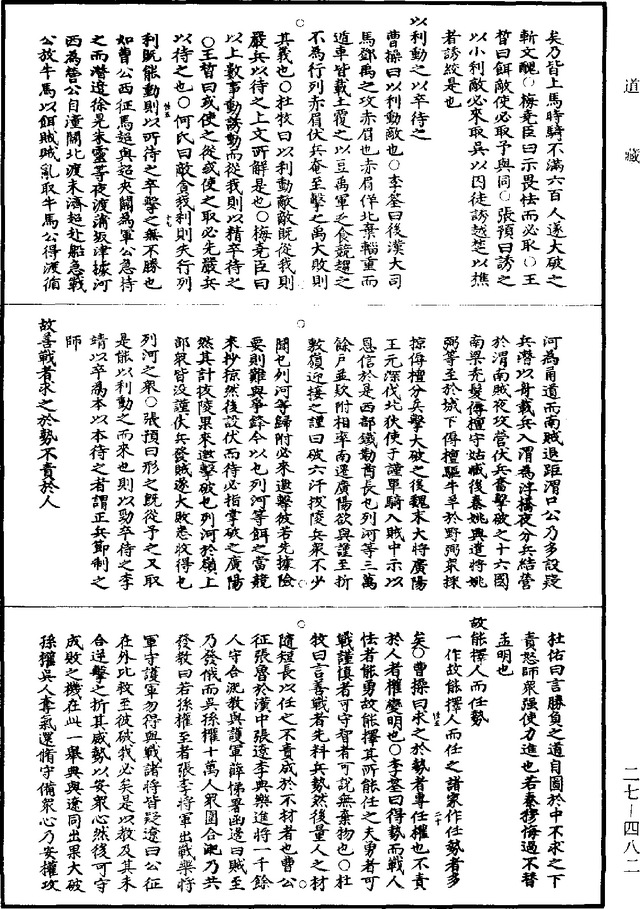 矣乃皆上馬時騎不滿六百人遂大破之
斬文醜○梅堯臣曰示畏怯而必取○王
晳曰餌敵使必取予與同○張預曰誘之
以小利敵必來取吳以囚徒誘越楚以樵
者誘絞是也
以利動之以卒待之
曹操曰以利動敵也○李筌曰後漢大司
馬鄧禹之攻赤眉也赤眉佯北棄輜重而
遁車皆載土覆之以豆禹軍乏食競趨之
不為行列赤眉伏兵奄至擊之禹大敗則
其義也○杜牧曰以利動敵敵既從我則
嚴兵以待之上文所解是也○梅堯臣曰
以上數事動誘敵而從我則以精卒待之
○王晳曰或使之從或使之取必先嚴兵
以待之也○何氏曰敵貪我利則失行列
利既能動則以所待之卒擊之無不勝也
如曹公西征馬超與超夾關為軍公急持
之而潛遣徐晃朱靈等夜渡蒲坂津據河
西為營公自潼關北渡未濟超赴船急戰
公放牛馬以餌賊賊亂取牛馬公得渡循
河為甬道而南賊退距渭口公乃多設疑
兵潛以舟載兵入渭為浮橋夜分兵結營
於渭南賊夜攻營伏兵奮擊破之十六國
南梁禿髮傉檀守姑臧後秦姚興遣將姚
弼等至於城下傉檀驅牛羊於野弼衆採
掠傉檀分兵擊大破之後魏末大將廣陽
王元深伐北狄使于謹單騎入賊中示以
恩信於是西部鐵勒酋長乜列河等三萬
餘戶並欵附相率南遷廣陽欲與謹至折
敷嶺迎接之謹曰破六汗拔陵兵衆不少
聞乜列河等歸附必來邀擊彼若先據險
要則難與爭鋒今以乜列河等餌之當競
來抄掠然後設伏而待必指掌破之廣陽
然其計拔陵果來邀擊破乜列河於嶺上
部衆皆沒謹伏兵發賊遂大敗悉收得乜
列河之衆○張預曰形之既從予之又取
是能以利動之而來也則以勁卒待之李
靖以卒為本以本待之者謂正兵節制之
師
故善戰者求之於勢不責於人
杜佑曰言勝負之道自圖於中不求之下
責怒師衆强使力進也若秦穆悔過不替
孟明也
故能擇人而任勢
一作故能擇人而任之諸家作任勢者多
矣○曹操曰求之於勢者專任權也不責
於人者權變明也○李筌曰得勢而戰人
怯者能勇故能擇其所能任之夫勇者可
戰謹慎者可守智者可說無棄物也○杜
牧曰言善戰者先料兵勢然後量人之材
隨短長以任之不責成於不材者也曹公
征張魯於漢中張遼李典樂進將一千餘
人守合淝教與護軍薛悌署函邊曰賊至
乃發俄而吳孫權十萬人衆圍合淝乃共
發教曰若孫權至者張李將軍出戰樂將
軍守護軍勿得與戰諸將皆疑遼曰公征
在外比救至彼破我必矣是以教及其未
合逆擊之折其威勢以安衆心然後可守
成敗之機在此一舉典與遼同出果大破
孫權吳人奪氣還脩守備衆心乃安權攻
道藏
二七—四八二